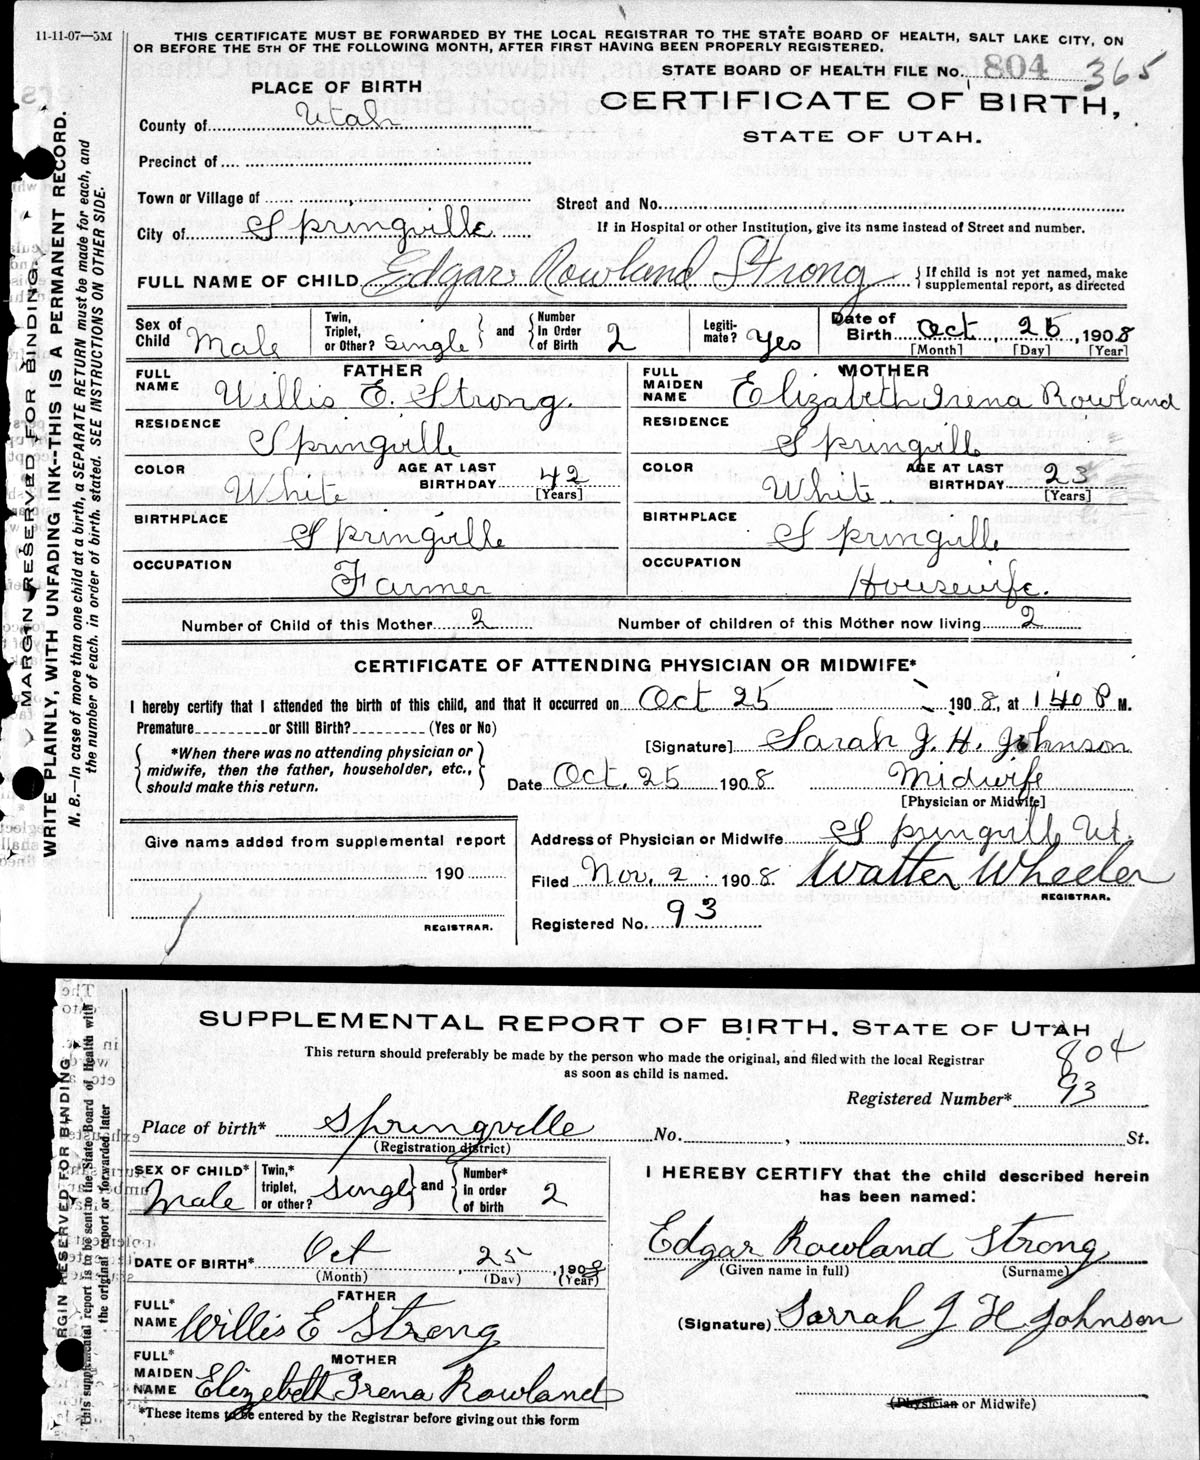 11-11-07—5M
THIS CERTIFICATE MUST BE FORWARDED BY THE LOCAL REGISTRAR TO THE STATE BOARD OF HEALTH, SALT LAKE CITY, ON
OR BEFORE THE 5TH OF THE FOLLOWING MONTH, AFTER FIRST HAVING BEEN PROPERLY REGISTERED.
STATE BOARD OF HEALTH FILE No. 804 365
PLACE OF BIRTH
CERTIFICATE OF BIRTH,
STATE OF UTAH.
County of Utah
Precinct of
Town or Village of
Street and No.
City of Springville
If in Hospital or other Institution, give its name instead of Street and number.
FULL NAME OF CHILD Edgar Rowland Strong
If child is not yet named, make
supplemental report, as directed
Sex of Child Male
Twin, Triplet, or Other? Single and Number In Order of Birth 2
Legiti-mate? Yes
Date of Birth Oct, 25, 1908
[Month] [Day] [Year]
FATHER
FULL NAME Willis E. Strong.
MOTHER
FULL MAIDEN NAME Elizabeth Irena Rowland
RESIDENCE Springville
RESIDENCE Springville
COLOR White AGE AT LAST BIRTHDAY 42 [Years]
COLOR White. AGE AT LAST BIRTHDAY 23 [Years]
BIRTHPLACE Springville
BIRTHPLACE Springville
OCCUPATION Farmer
OCCUPATION Housewife.
Number of Child of this Mother 2 Number of children of this Mother now living 2
CERTIFICATE OF ATTENDING PHYSICIAN OR MIDWIFE*
I hereby certify that I attended the birth of this child, and that it occurred on Oct 25 1908, at 1 40 P M.
Premature or Still Birth? (Yes or No)
*When there was no attending physician or
midwife, then the father, householder, etc.,
should make this return.
[Signature] Sarah J. H. Johnson
Date Oct. 25 1908 Midwife
[Physician or Midwife]
Give name added from supplemental report
190
REGISTRAR.
Address of Physician or Midwife Springville Ut.
Filed Nov. 2. 1908. Walter Wheeler
REGISTRAR.
Registered No. 93
MARGIN RESERVED FOR BINDING.
WRITE PLAINLY, WITH UNFADING INK--THIS IS A PERMANENT RECORD.
N. B.—In case of more than one child at a birth, a SEPARATE RETURN must be made for each, and
the number of each, in order of birth, stated. SEE INSTRUCTIONS ON OTHER SIDE.
SUPPLEMENTAL REPORT OF BIRTH, STATE OF UTAH
This return should preferably be made by the person who made the original, and filed with the local Registrar
as soon as child is named.
804
Registered Number* 93
Place of birth* Springville No. , St.
(Registration district)
SEX OF CHILD* Male
Twin,* triplet, or other? Single and Number* in order of birth 2
I HEREBY CERTIFY that the child described herein
has been named:
DATE OF BIRTH* Oct, 25, 1908
(Month) (Day) (Year)
Edgar Rowland Strong
(Given name in full) (Surname)
FATHER
FULL* NAME Willis E Strong
(Signature) Sarrah J H Johnson
MOTHER
FULL* MAIDEN NAME Elizebeth Irena Rowland
(Physician or Midwife)
*These items to be entered by the Registrar before giving out this form
RGIN RESERVED FOR BINDING
This supplemental report is to be sent to the State Board of Health with
the original report or forwarded later